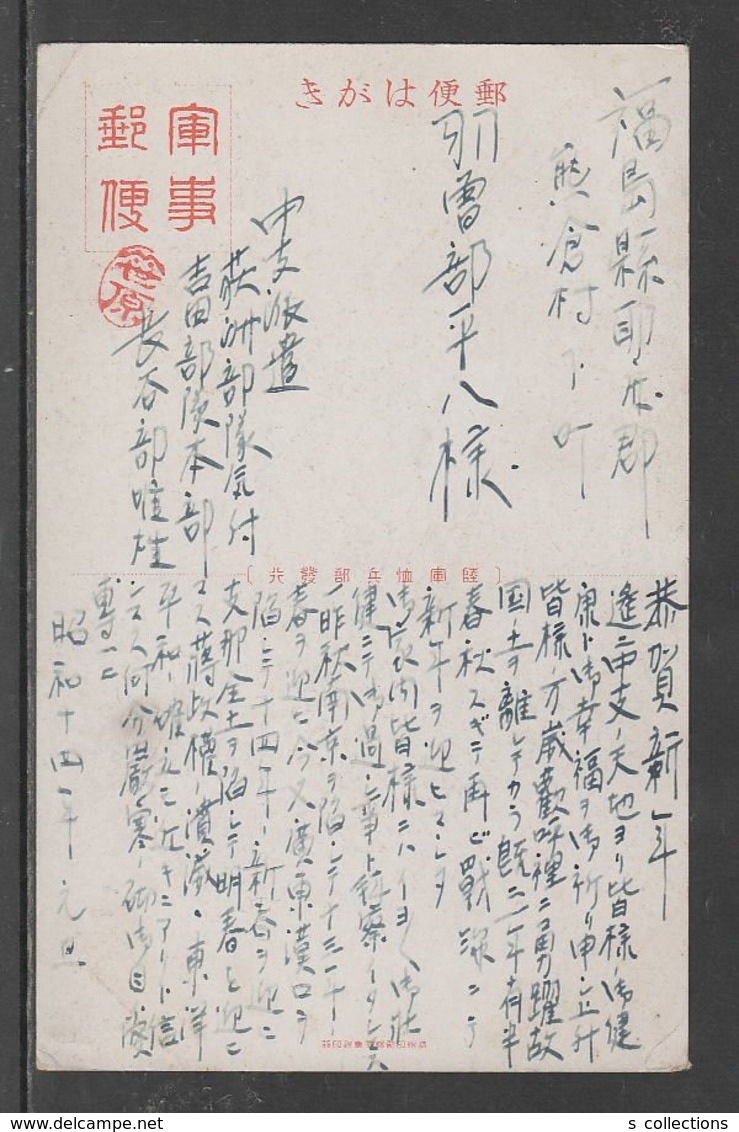 郵便はがき
軍事
郵便
笹原
福島縣耶麻郡
熊倉村下町
部平八様
中支派遣
荻洲部隊気付
吉田部隊本部
長谷部
〔陸軍恤兵部發行〕
恭賀新年
遙ニ中支ノ天地ヨリ皆様ノ御健
康ト御幸福ヲ御祈リ申シ上升
皆様ノ万歳歡呼裡ニ勇躍故
国ノ土ヲ離レテカラ既ニ一年有半
春秋スギテ再ビ戰線ニテ
新年ヲ迎ヒマシタ
御家内皆様ニハイヨ〱御壮
健ニテ御過シ事ト拝察イタシマス
一昨秋南京ヲ陷シテ十三年ノ
春ヲ迎ヒ今又廣東漢口ヲ
陷シテ十四年ノ新春ヲ迎ニ
支那全土ヲ陷シテ明春ヲ迎ニ
マス蒋政權ノ潰滅、東洋
平和ノ確立ニ近キニアート信
ジマス何分嚴寒ノ砌御自愛
專一ニ
昭和十四年元旦